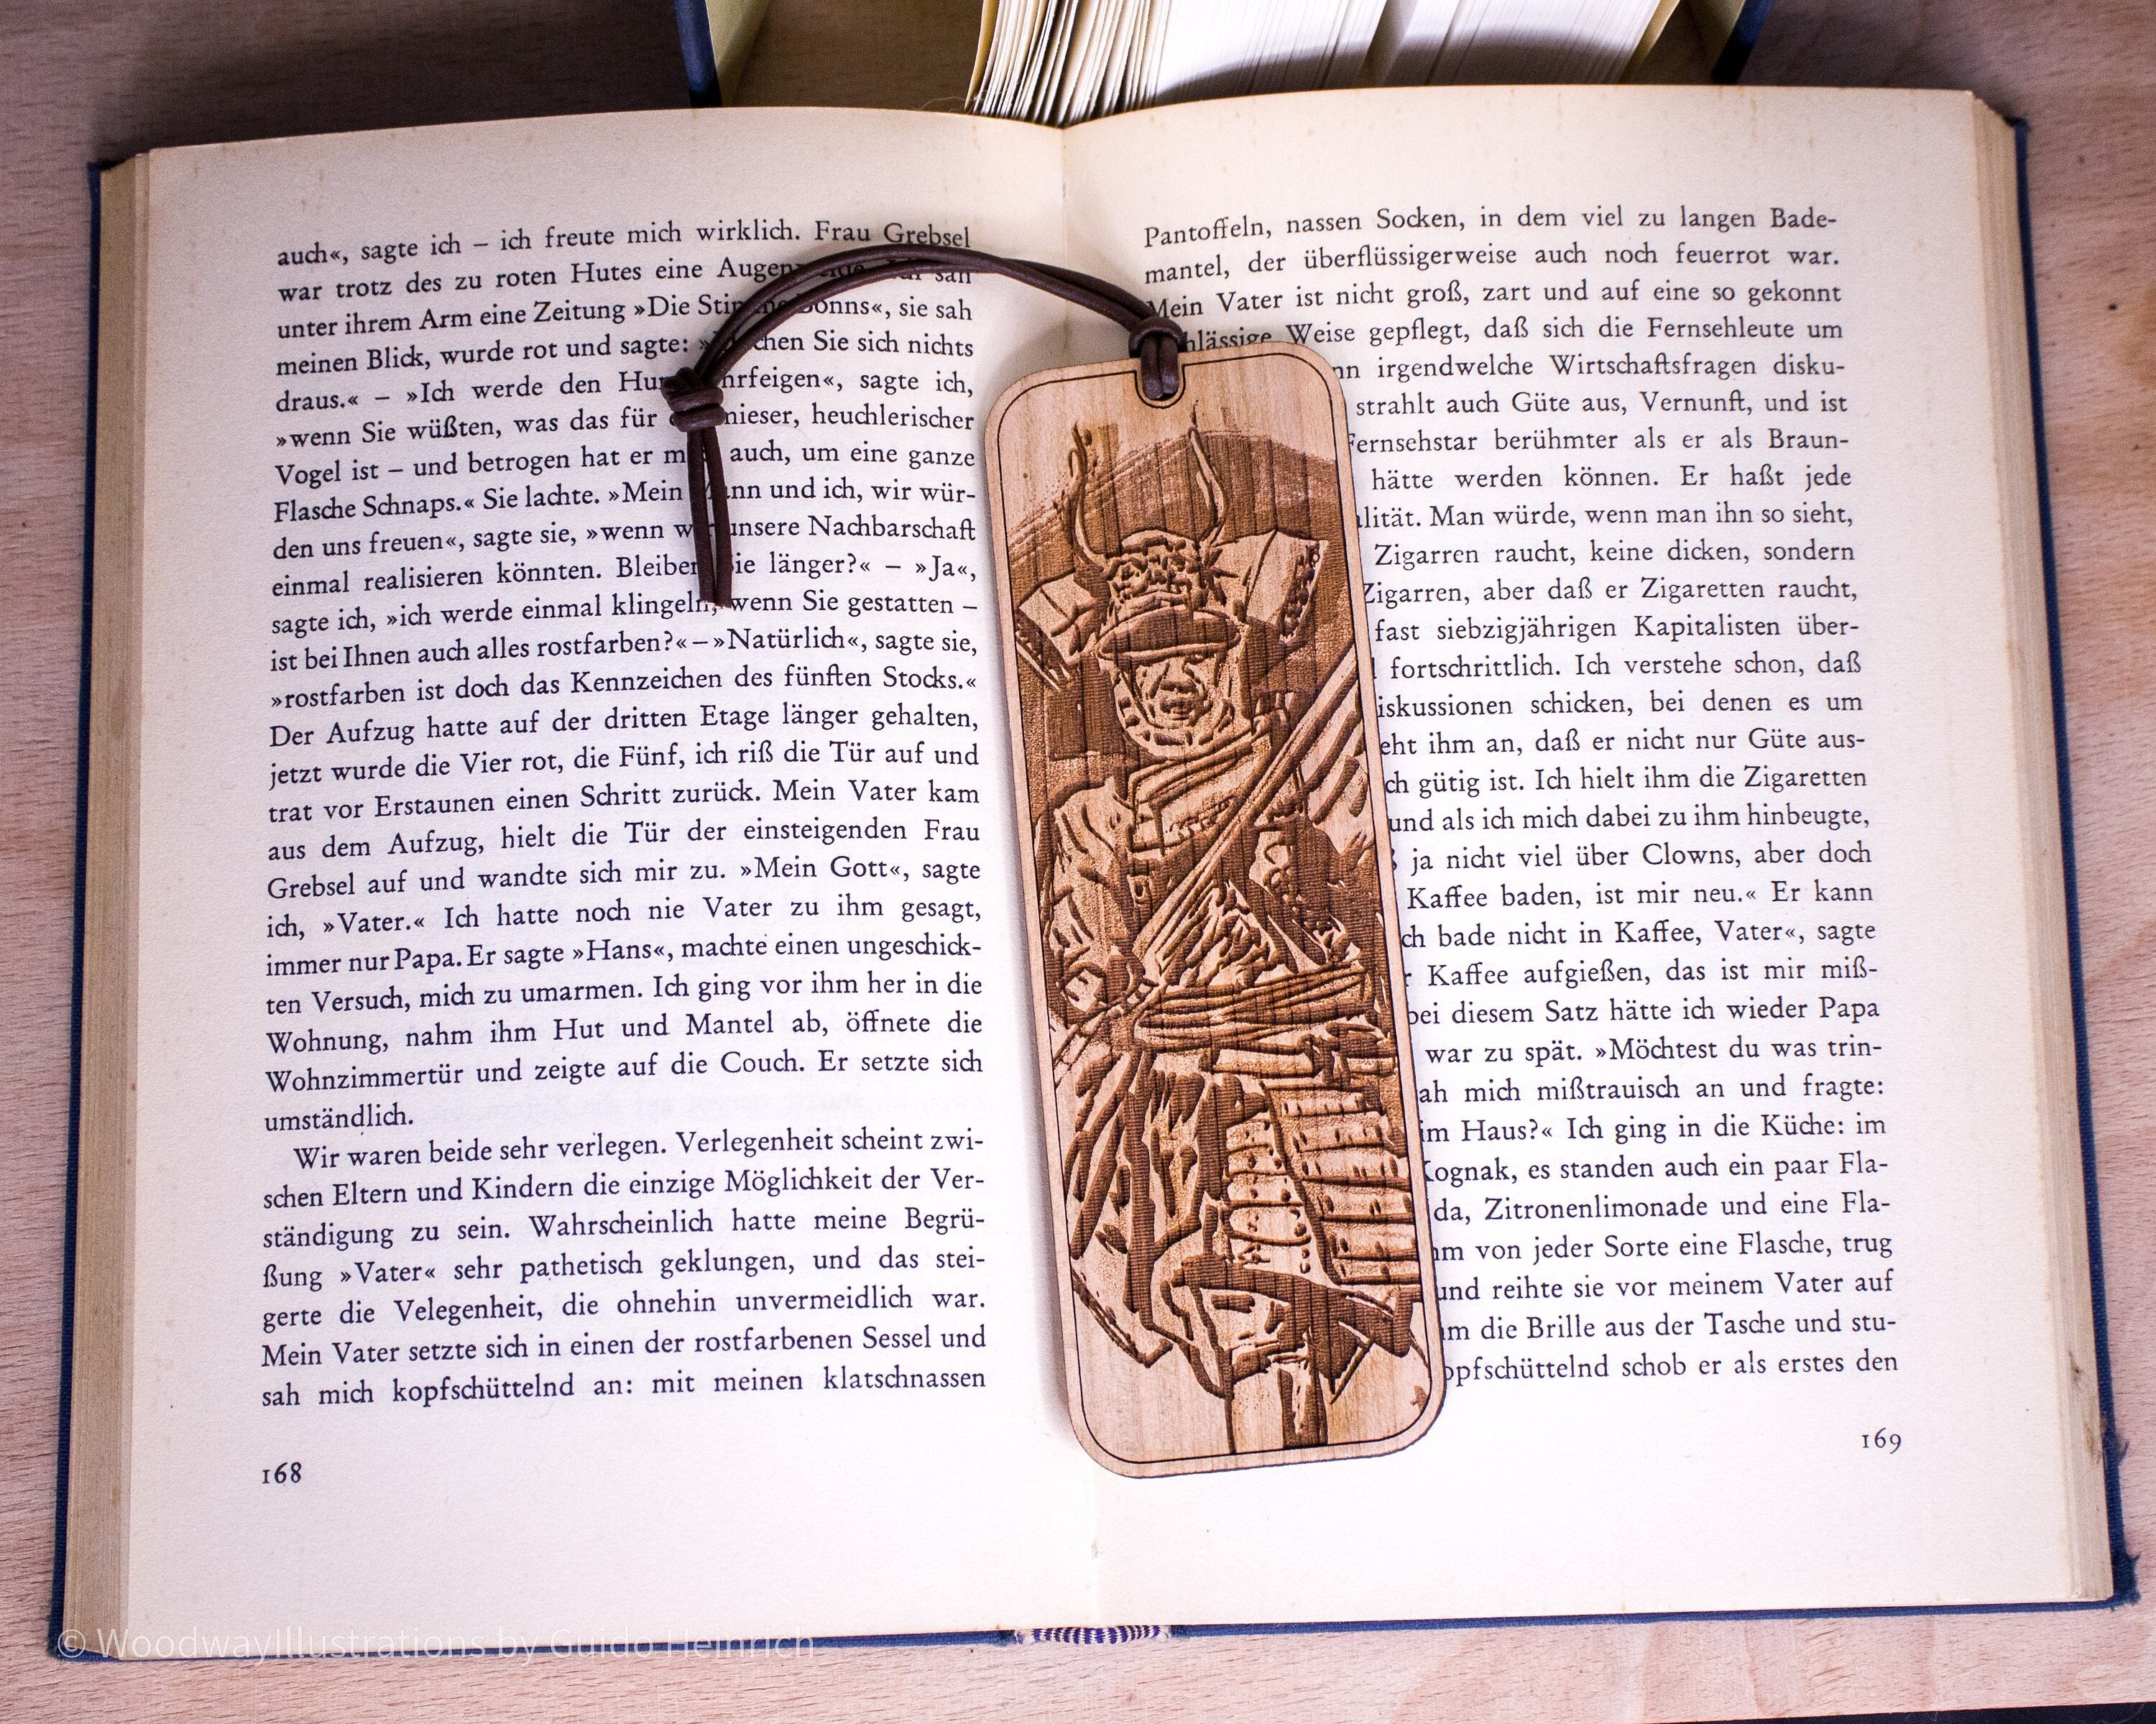 auch«, sagte ich – ich freute mich wirklich. Frau Grebsel
war trotz des zu roten Hutes eine
unter ihrem Arm eine Zeitung »Die Bonns«, sie sah
meinen Blick, wurde rot und sagte: Sie sich nichts
draus.« – »Ich werde den sagte ich,
»wenn Sie wüßten, was das für mieser, heuchlerischer
Vogel ist – und betrogen hat er auch, um eine ganze
Flasche Schnaps.« Sie lachte. »Mein und ich, wir wür-
den uns freuen«, sagte sie, »wenn unsere Nachbarschaft
einmal realisieren könnten. Bleiben Sie länger?« – »Ja«,
sagte ich, »ich werde einmal klingeln, wenn Sie gestatten –
ist bei Ihnen auch alles rostfarben?« – »Natürlich«, sagte sie,
»rostfarben ist doch das Kennzeichen des fünften Stocks.«
Der Aufzug hatte auf der dritten Etage länger gehalten,
jetzt wurde die Vier rot, die Fünf, ich riß die Tür auf und
trat vor Erstaunen einen Schritt zurück. Mein Vater kam
aus dem Aufzug, hielt die Tür der einsteigenden Frau
Grebsel auf und wandte sich mir zu. »Mein Gott«, sagte
ich, »Vater.« Ich hatte noch nie Vater zu ihm gesagt,
immer nur Papa. Er sagte »Hans«, machte einen ungeschick-
ten Versuch, mich zu umarmen. Ich ging vor ihm her in die
Wohnung, nahm ihm Hut und Mantel ab, öffnete die
Wohnzimmertür und zeigte auf die Couch. Er setzte sich
umständlich.
Wir waren beide sehr verlegen. Verlegenheit scheint zwi-
schen Eltern und Kindern die einzige Möglichkeit der Ver-
ständigung zu sein. Wahrscheinlich hatte meine Begrü-
ßung »Vater« sehr pathetisch geklungen, und das stei-
gerte die Velegenheit, die ohnehin unvermeidlich war.
Mein Vater setzte sich in einen der rostfarbenen Sessel und
sah mich kopfschüttelnd an: mit meinen klatschnassen
168
Pantoffeln, nassen Socken, in dem viel zu langen Bade-
mantel, der überflüssigerweise auch noch feuerrot war.
Mein Vater ist nicht groß, zart und auf eine so gekonnt
Weise gepflegt, daß sich die Fernsehleute um
irgendwelche Wirtschaftsfragen disku-
strahlt auch Güte aus, Vernunft, und ist
Fernsehstar berühmter als er als Braun-
hätte werden können. Er haßt jede
Man würde, wenn man ihn so sieht,
Zigarren raucht, keine dicken, sondern
Zigarren, aber daß er Zigaretten raucht,
fast siebzigjährigen Kapitalisten über-
fortschrittlich. Ich verstehe schon, daß
schicken, bei denen es um
ihm an, daß er nicht nur Güte aus-
gütig ist. Ich hielt ihm die Zigaretten
und als ich mich dabei zu ihm hinbeugte,
ja nicht viel über Clowns, aber doch
Kaffee baden, ist mir neu.« Er kann
bade nicht in Kaffee, Vater«, sagte
Kaffee aufgießen, das ist mir miß-
bei diesem Satz hätte ich wieder Papa
war zu spät. »Möchtest du was trin-
mich mißtrauisch an und fragte:
im Haus?« Ich ging in die Küche: im
Kognak, es standen auch ein paar Fla-
Zitronenlimonade und eine Fla-
von jeder Sorte eine Flasche, trug
und reihte sie vor meinem Vater auf
die Brille aus der Tasche und stu-
schob er als erstes den
169
© WoodwayIllustrations by Guido Heinrich